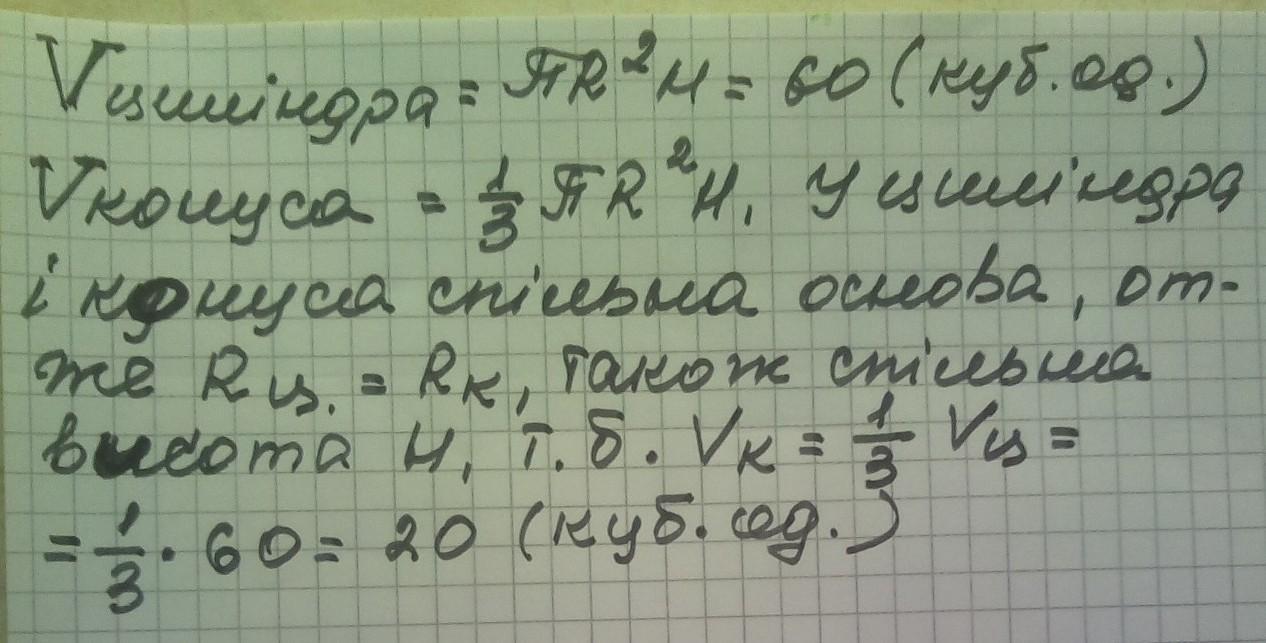 Vциліндра = πR²H = 60 (куб. од.)
Vконуса = 1/3 πR²H. У циліндра
і конуса спільна основа, от-
же Rц. = Rк, також спільна
висота H, т.б. Vк = 1/3 Vц =
= 1/3 · 60 = 20 (куб. од.)